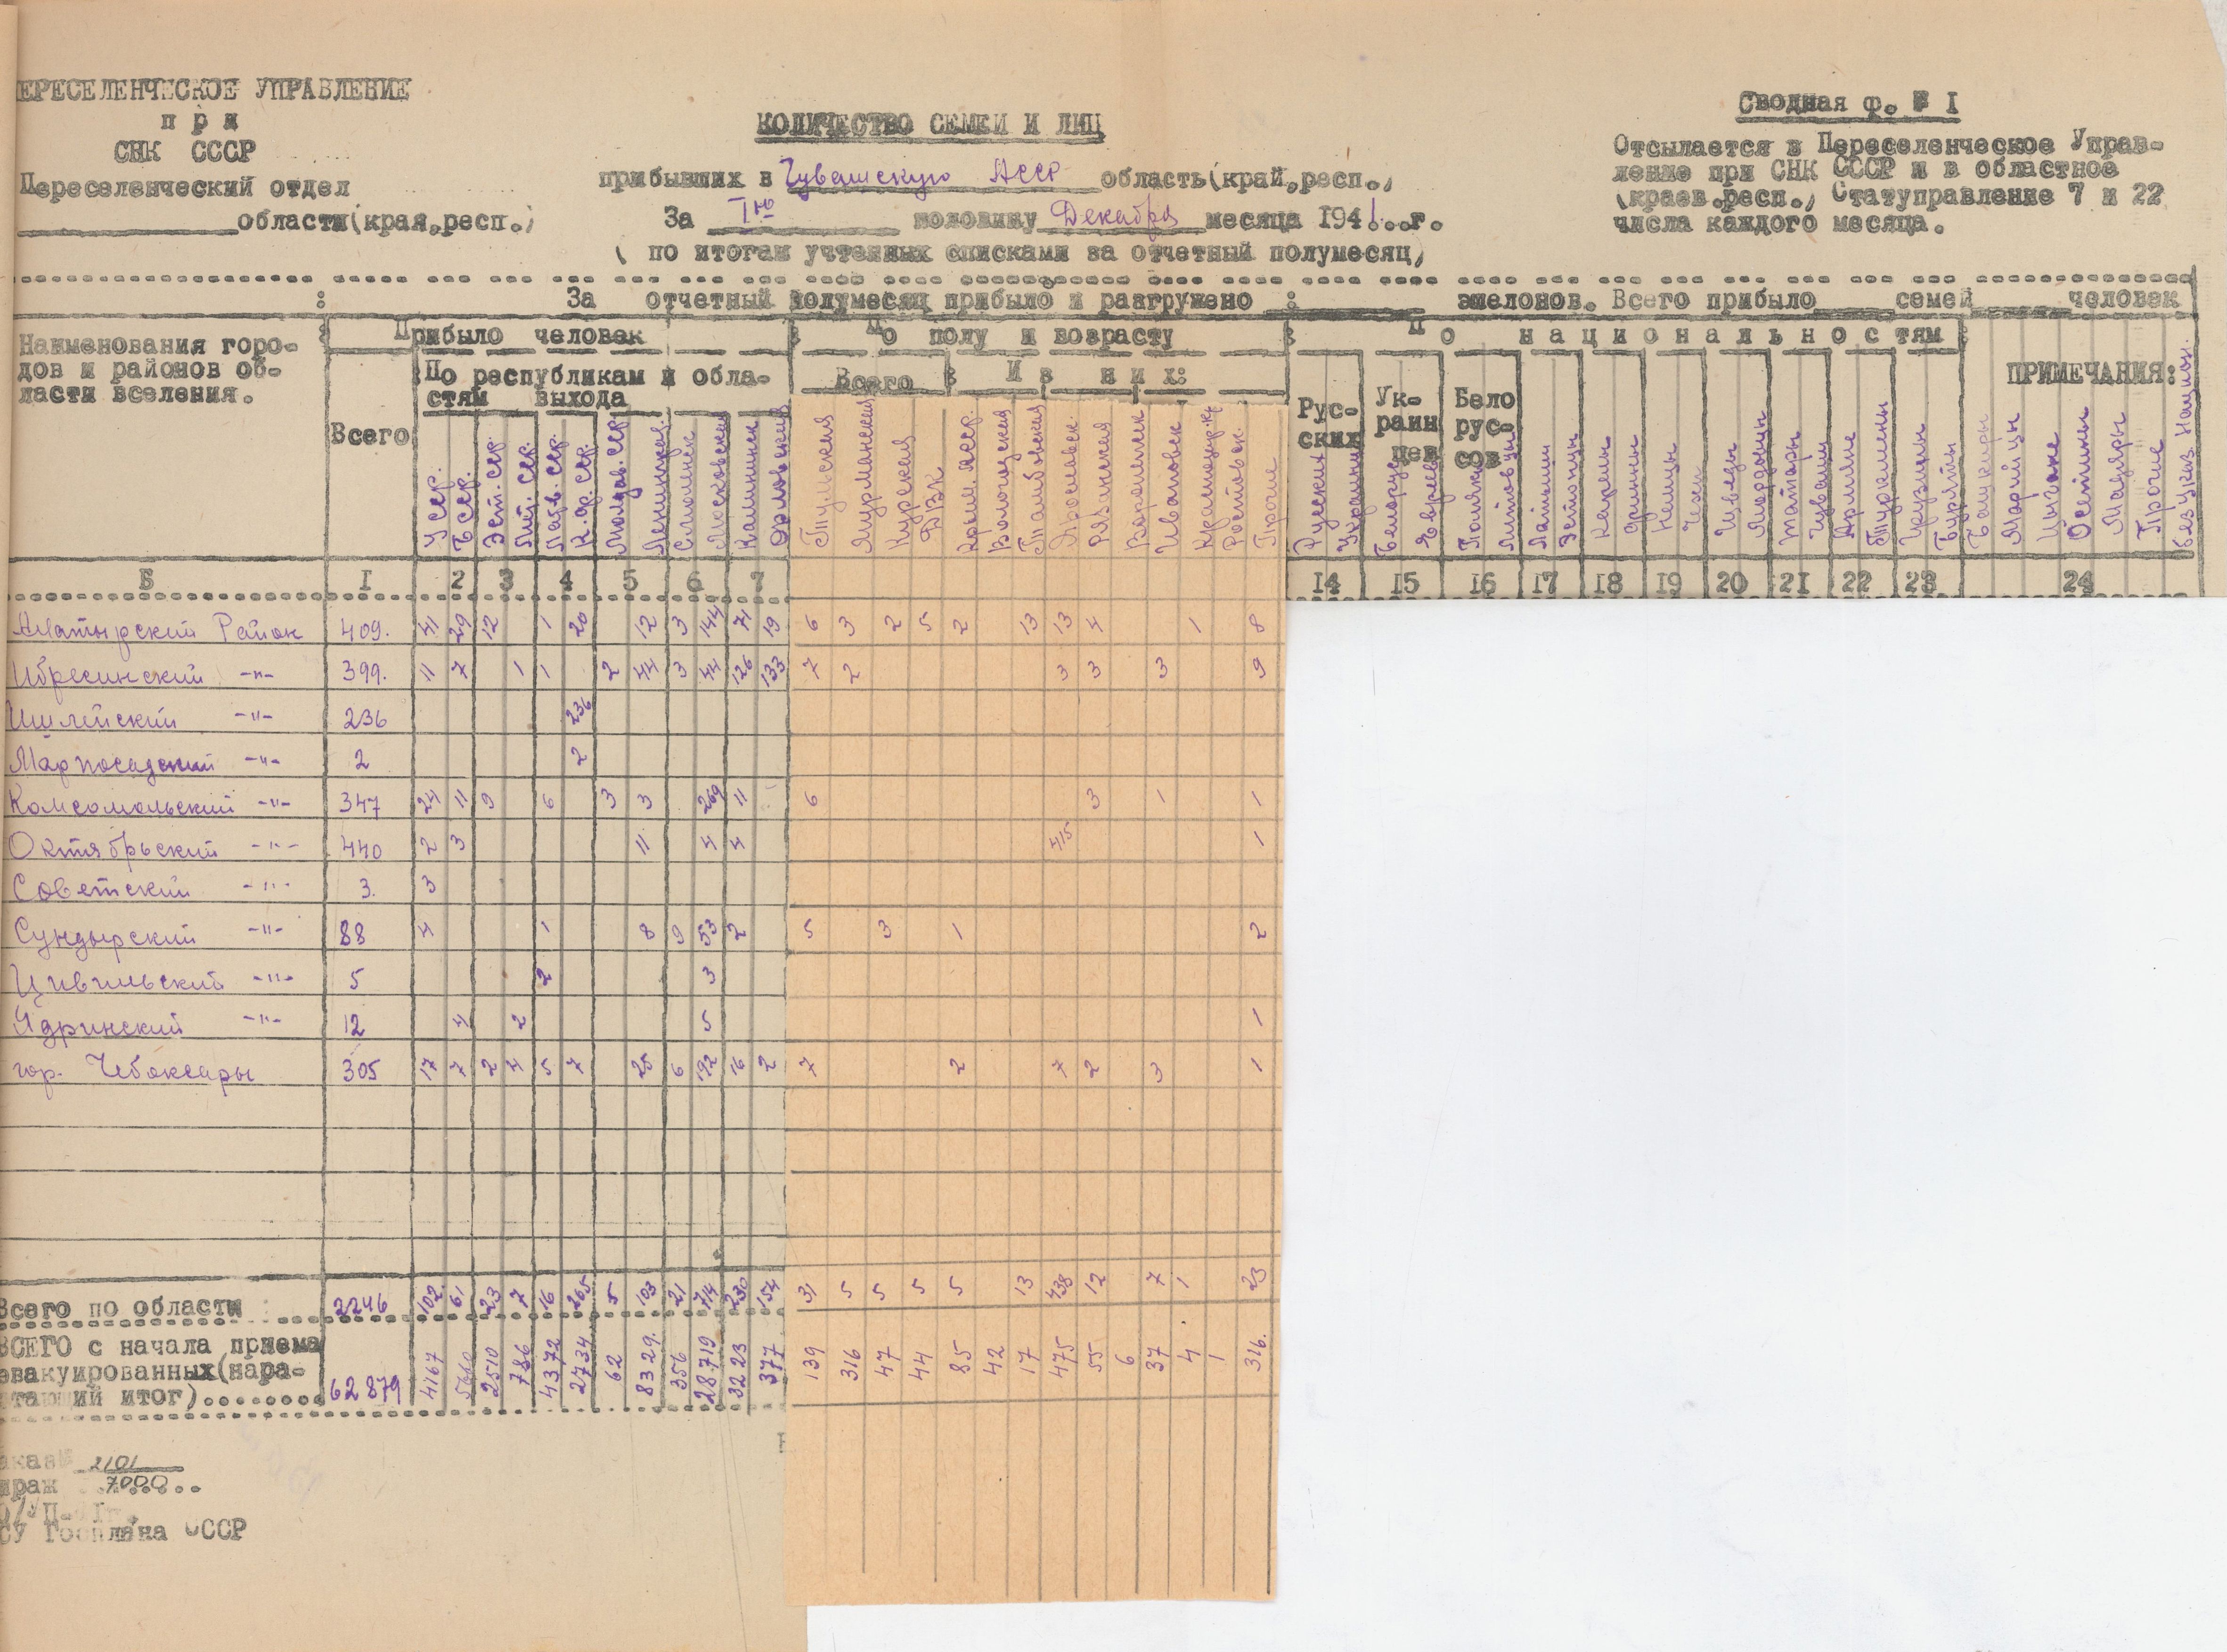 ЕРЕСЕЛЕНЧЕСКОЕ УПРАВЛЕНИЕ
при
СНК СССР
Переселенческий отдел
области(края,респ.)
КОЛИЧЕСТВО СЕМЕЙ И ЛИЦ
прибывших в Чувашскую АССР область(край,респ.)
За Iую половину Декабря месяца 1941...г.
( по итогам учтенных списками за отчетный полумесяц)
Сводная ф. № I
Отсылается в Переселенческое Управ-
ление при СНК СССР и в областное
(краев.респ.) Статуправление 7 и 22
числа каждого месяца.
За отчетный полумесяц прибыло и разгружено эшелонов. Всего прибыло семей человек
Наименования горо-
дов и районов об-
ласти вселения.
Прибыло человек
Всего
По республикам и обла-
стям выхода
По полу и возрасту
Всего Из них:
По национальностям
ПРИМЕЧАНИЯ:
Рус-
ских
Ук-
раин
цев
Бело
рус-
сов
УССР.
БССР.
Эст. ССР.
Лит. ССР.
Латв. ССР.
К.ф. ССР.
Молдав. ССР.
Ленинград.
Смоленск
Московская
Калининск
Орловская
Тульская
Мурманская
Курская
ДВК
Крым. АССР.
Вологодская
Тамбовская
Ярославск.
Рязанская
Воронежск
Ивановск
Краснодар.кр
Ростовск.
Прочие
Русских
Украинцы
Белорус
Евреев
Поляки
Литовцы
Латыши
Эстонцы
Карелы
Финны
Немцы
Чехи
Шведы
Мордовцы
Татары
Чуваши
Армяне
Туркмены
Грузины
Буряты
Башкиры
Марийцы
Цыгане
Осетины
Мадьяры
Прочие
Без указ. Национ.
Б I 2 3 4 5 6 7 14 15 16 17 18 19 20 21 22 23 24
Алатырский Район 409. 41 29 12 1 20 12 3 144 71 19 6 3 2 5 2 13 13 4 1 8
Ибресинский -"- 399. 11 7 1 1 2 44 3 44 126 133 7 2 3 3 3 9
Ишлейский -"- 236 236
Марпосадский -"- 2 2
Комсомольский -"- 347 24 11 9 6 3 3 269 11 6 3 1 1
Октябрьский -"- 440 2 3 11 4 4 415 1
Советский -"- 3. 3
Сундырский -"- 88 4 1 8 9 53 2 5 3 1 2
Цивильский -"- 5 2 3
Ядринский -"- 12 4 2 5 1
гор. Чебоксары 305 17 7 2 4 5 7 25 6 192 16 2 7 2 7 2 3 1
Всего по области 2246 102 61 23 7 16 265 5 103 21 714 230 154 31 5 5 5 5 13 438 12 7 1 23
ВСЕГО с начала приема
эвакуированных(нара-
стающий итог)........ 62879 4167 2510 786 4372 2734 62 8329. 356 28719 3223 377 139 316 47 44 85 42 17 475 55 6 37 4 1 316.
аказ 2101
ираж 7000
СУ Госплана СССР